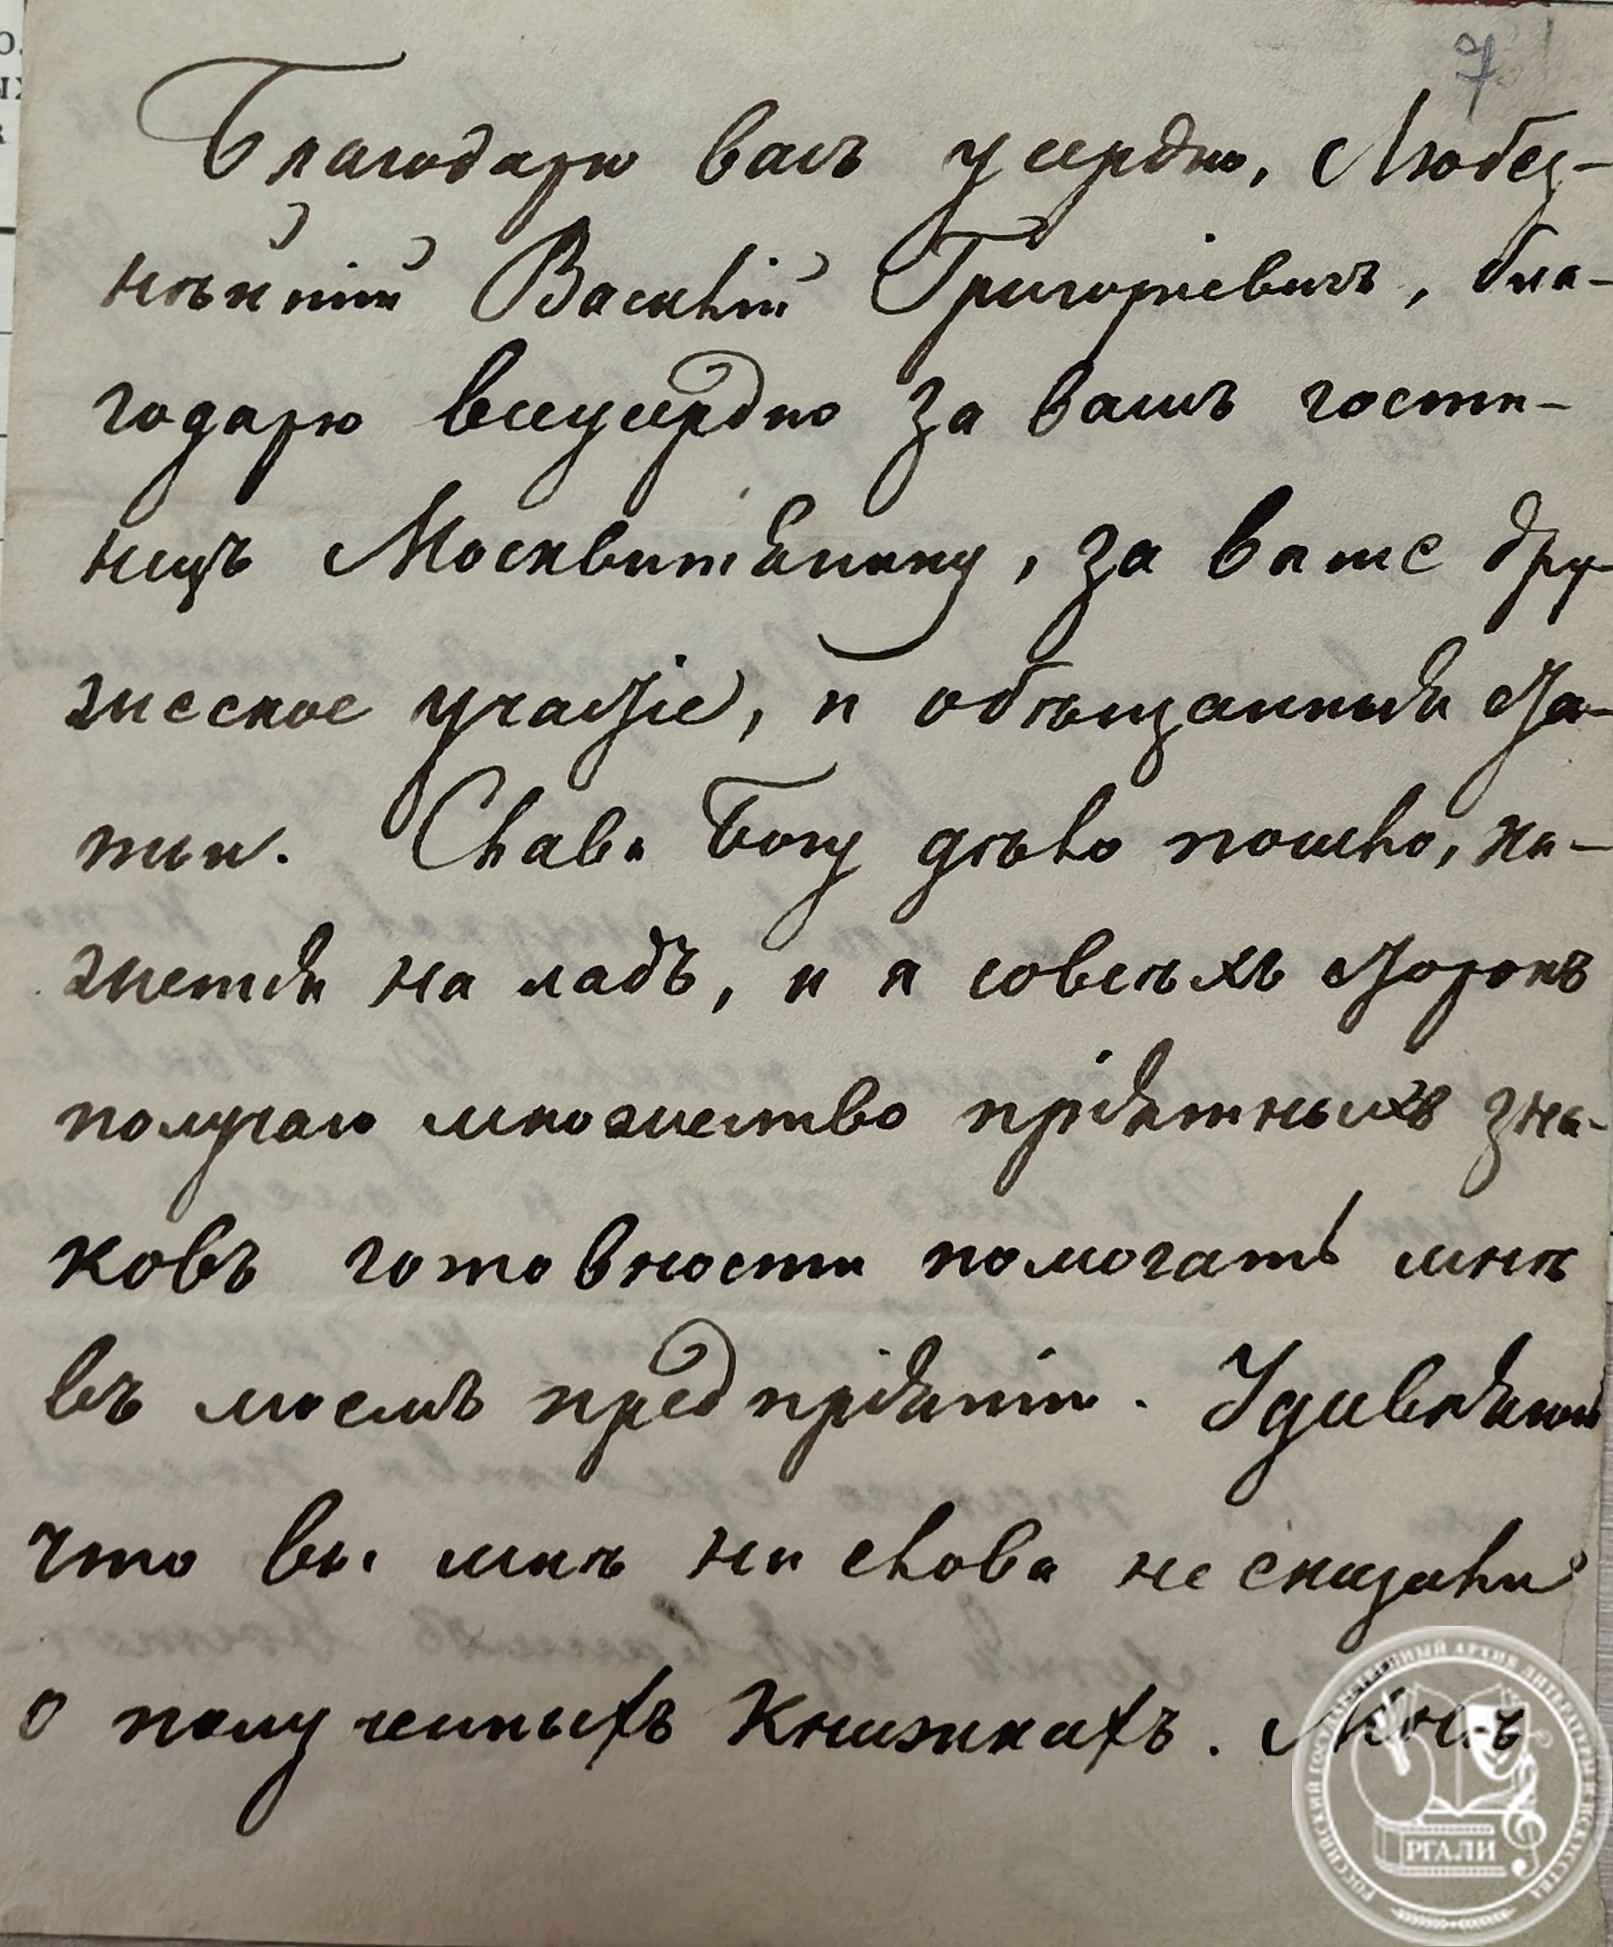 7
Благодарю васъ усердно, Любез-
нѣйшій Василій Григорьевичъ, бла-
годарю всеусердно за вашъ гости-
нецъ Москвитянину, за ваше дру-
жеское участіе, и обѣщанныя ста-
тьи. Слава Богу дѣло пошло, ка-
жется на ладъ, и я со всѣхъ сторонъ
получаю множество пріятныхъ зна-
ковъ готовности помогать мнѣ
въ моемъ предпріятіи. Удивляюсь
что вы мнѣ ни слова не сказали
о полученныхъ книжкахъ. Мнѣ
РОССИЙСКИЙ ГОСУДАРСТВЕННЫЙ АРХИВ ЛИТЕРАТУРЫ И ИСКУССТВА
РГАЛИ